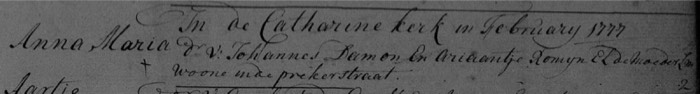 In de Catharine kerk in February 1777
Anna Maria d v: Johannes Damon En Ariaantje Romyn El de moeder
woone inde prekerstraat.